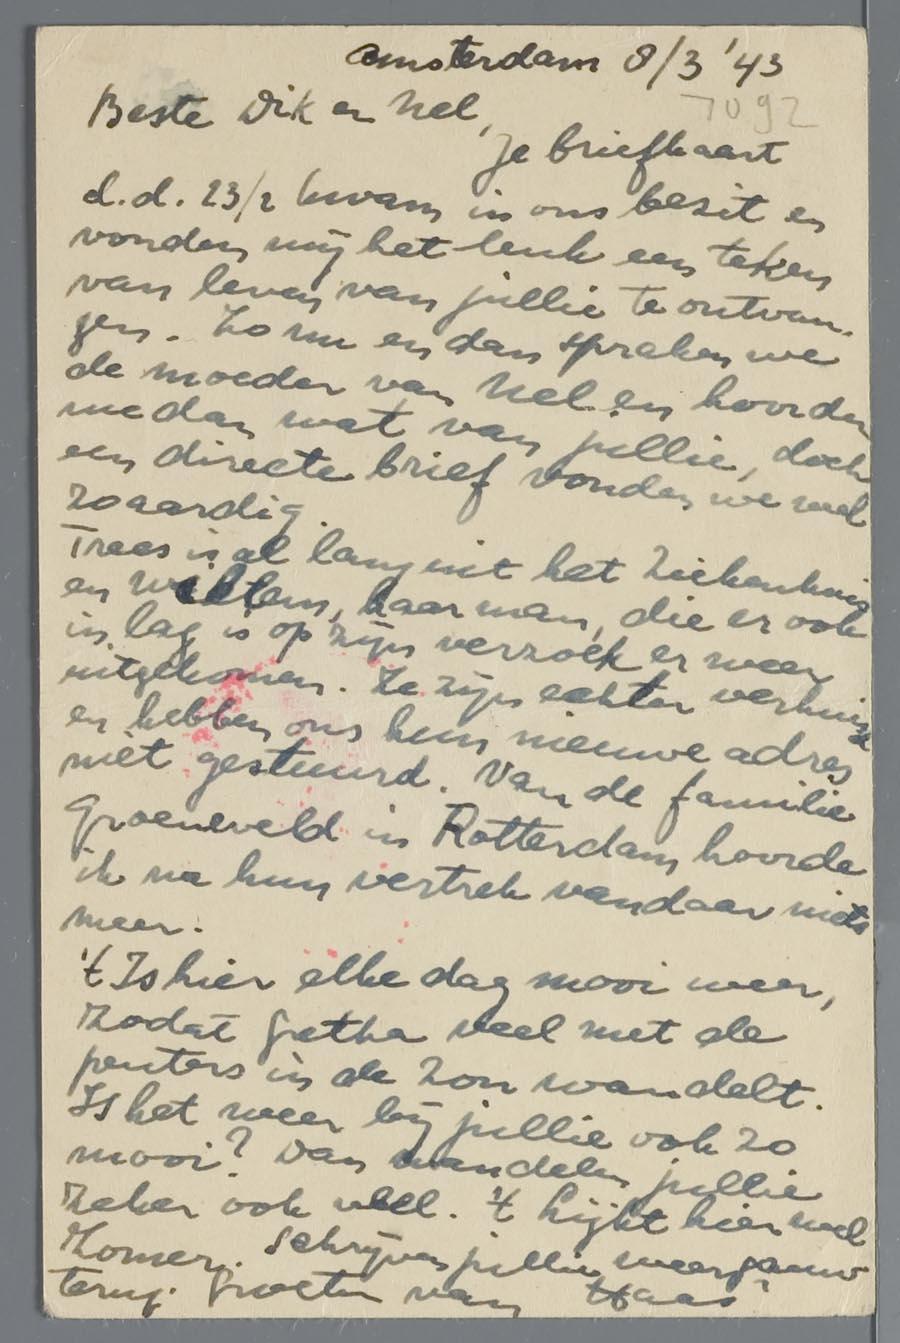 Amsterdam 8/3 '43
7092
Beste Dik en Nel,
Je briefkaart
d.d. 23/2 kwam in ons bezit en
vonden wij het leuk een teken
van leven van jullie te ontvan-
gen. Zo nu en dan spraken we
de moeder van Nel en hoorden
we dan wat van jullie, doch
een directe brief vonden we wel
zo aardig.
Trees is al lang uit het Ziekenhuis
en Willem, haar man, die er ook
in lag is op zijn verzoek er weer
uitgekomen. Ze zijn echter verhuisd
en hebben ons hun nieuwe adres
niet gestuurd. Van de familie
Groeneveld in Rotterdam hoorde
ik na hun vertrek vandaar niets
meer.
't Is hier elke dag mooi weer,
zodat Gretha veel met de
peuters in de zon wandelt.
Is het weer bij jullie ook zo
mooi? Dan wandelen jullie
zeker ook veel. 't Lijkt hier wel
Zomer. Schrijven jullie weer gauw
terug. Groeten van Haas